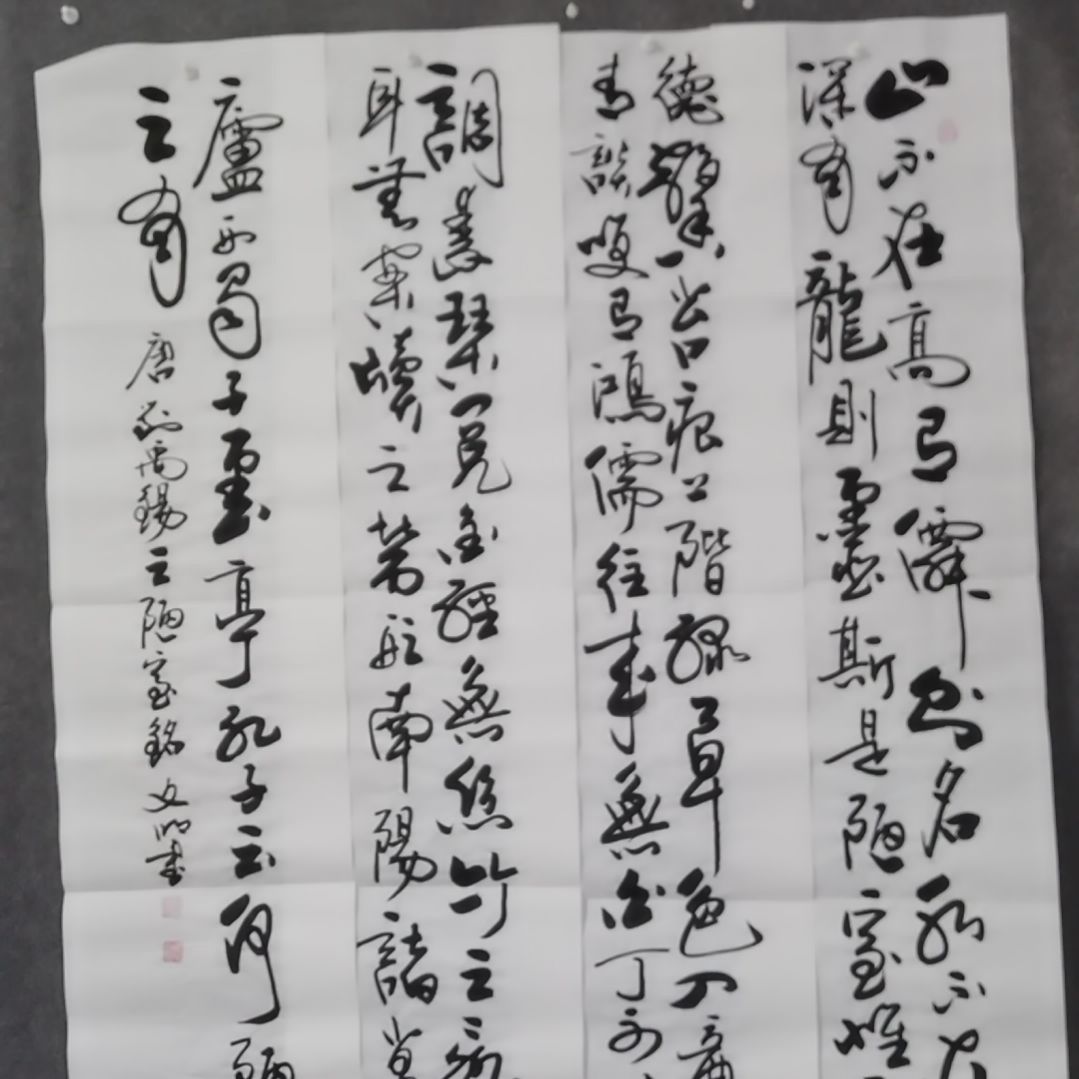 山不在高有僊則名水不在
深有龍則靈斯是陋室惟
德馨苔痕上階綠草色入簾
青談笑有鴻儒往來無白丁可
調素琴閱金經無絲竹之亂
耳無案牘之勞形南陽諸葛
廬西蜀子雲亭孔子云何陋
之有 唐劉禹錫之陋室銘 文明書